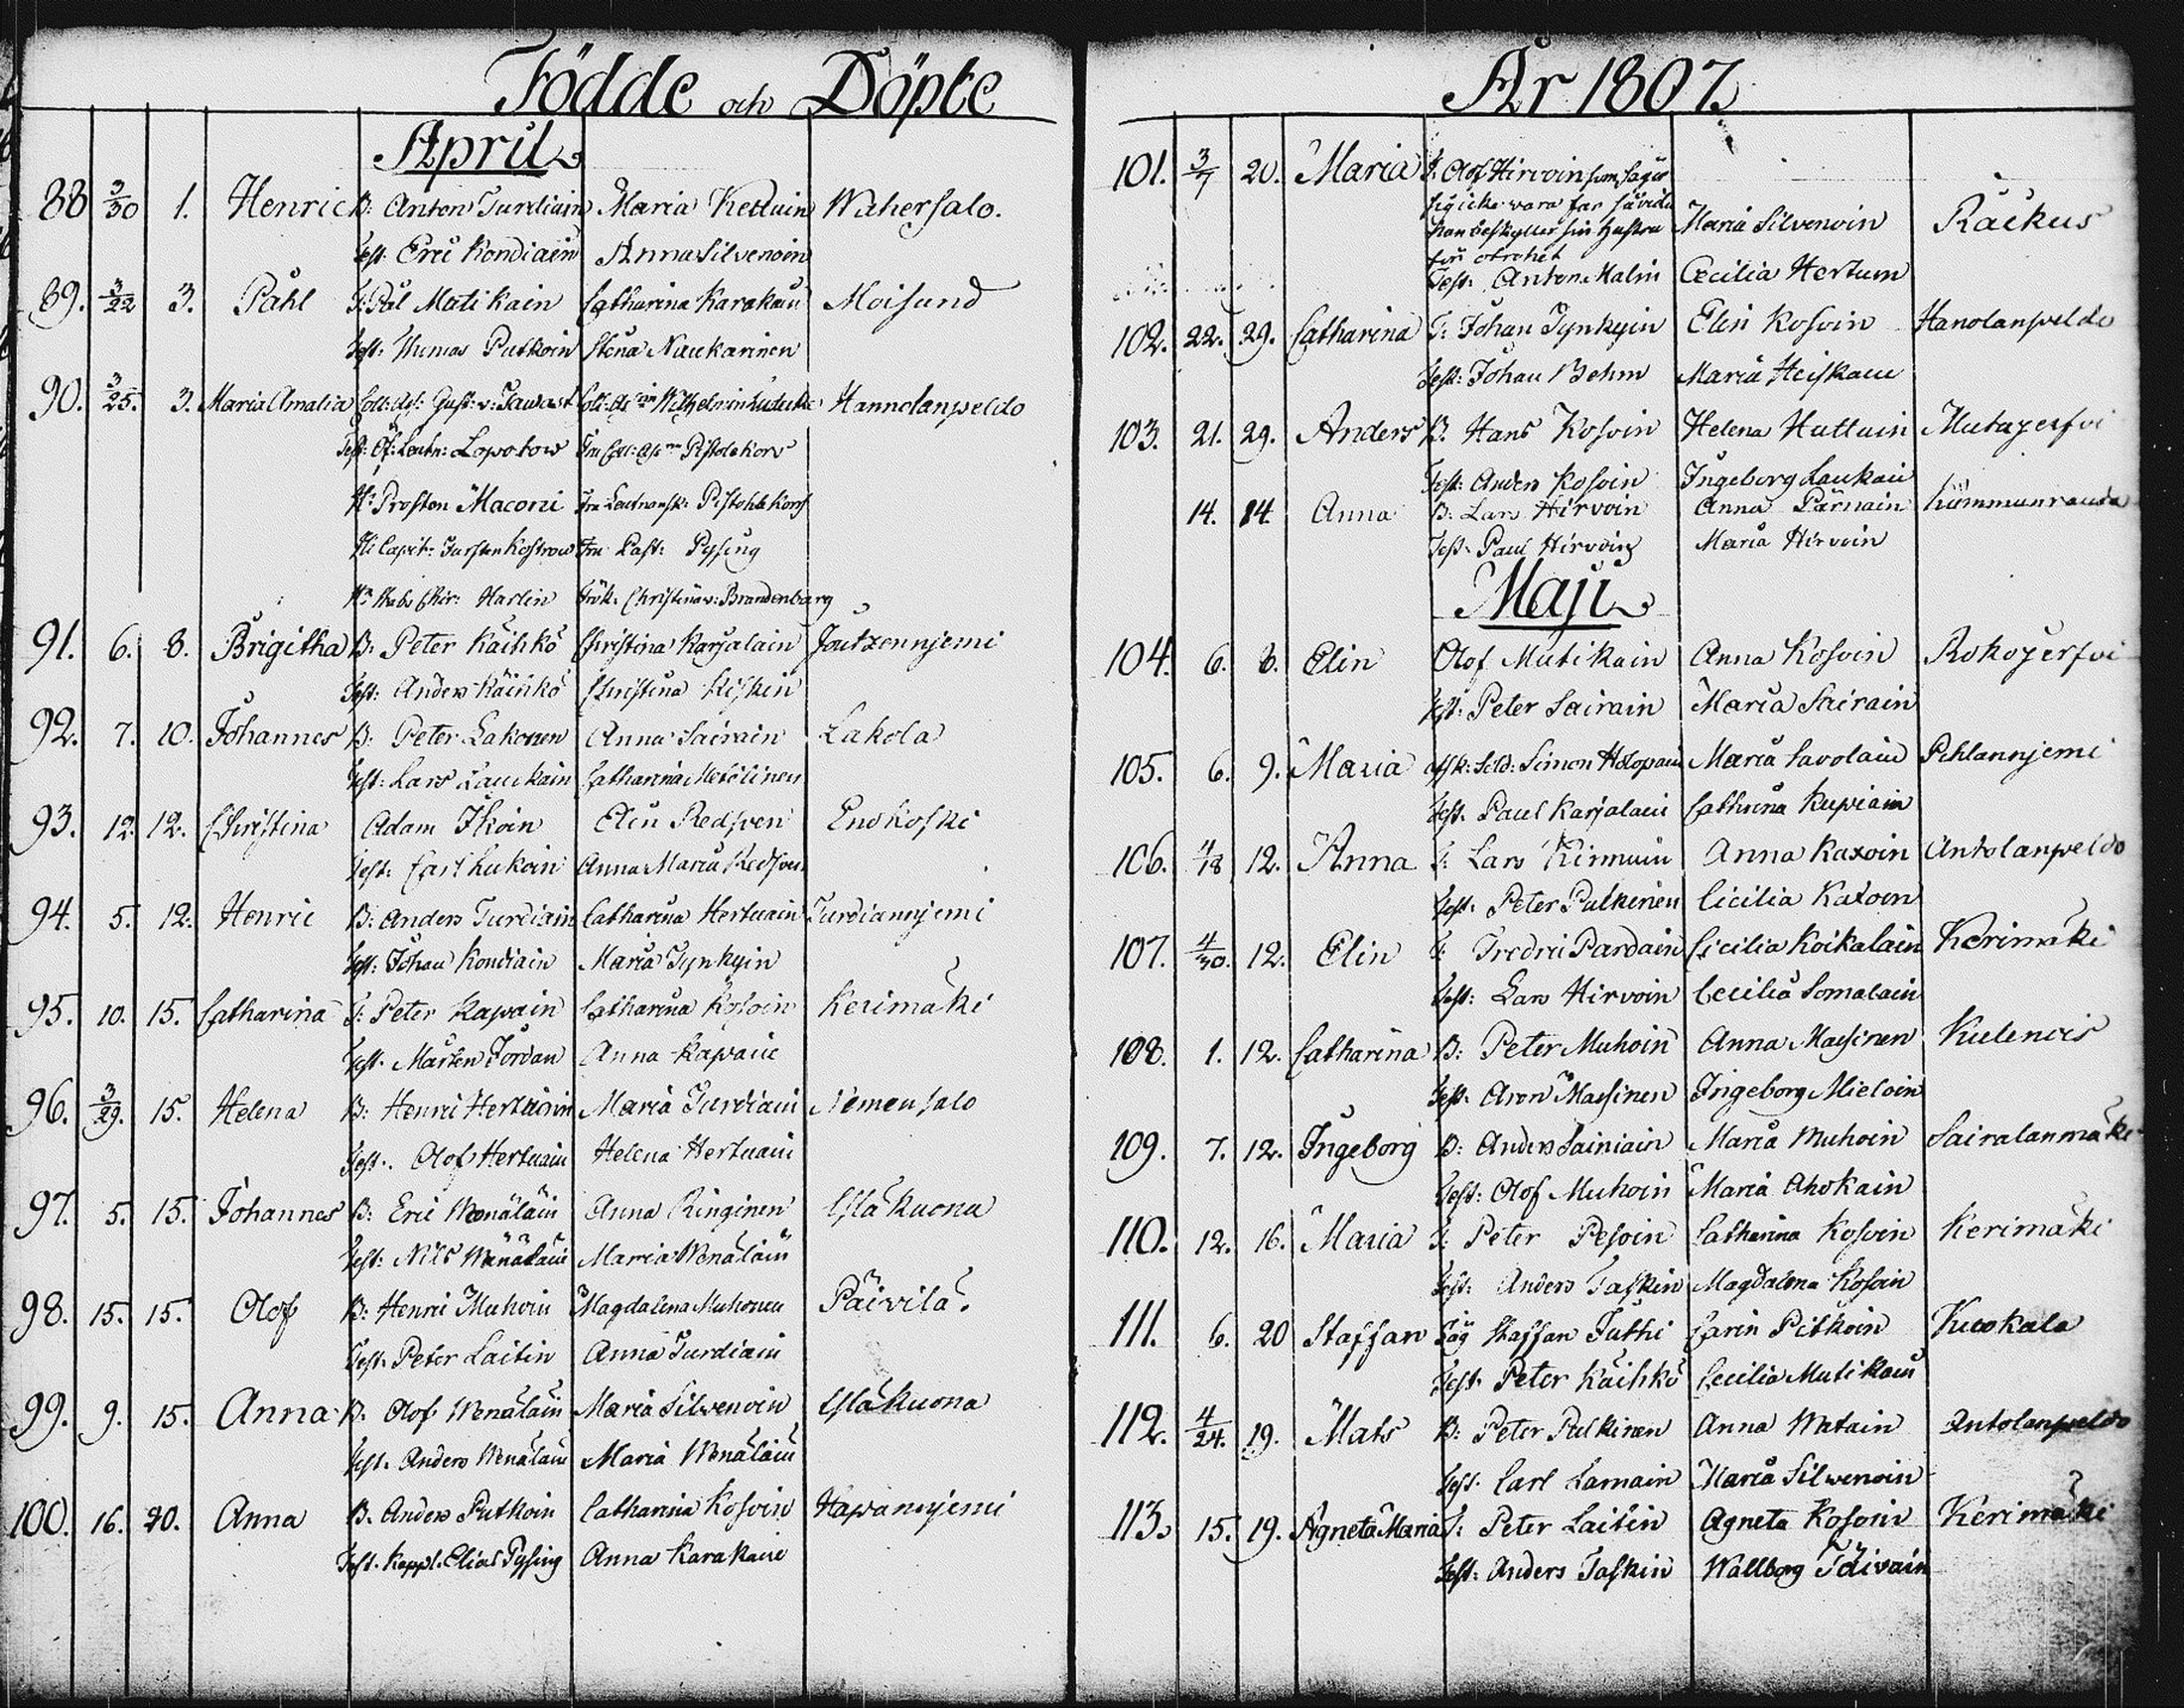 Födde och Döpte
April
88 3/30 1. Henric B: Anton Turdiain Maria Kettuin Wihersalo.
Test: Eric Kondiain Anna Silvenoin
89. 3/22 3. Påhl T: Pål Matikain Catharina Karakain Moisund
Test: Thomas Putkoin Stina Naukarinen
90. 3/25. 3. Maria Amalia Coll: Ass: Gust: v: Tawast Hannolanpeldo
Test: Of: Leutn: Lopotow Fru Coll: Pistolekors
Hr Prosten Maconi Fru Pistohlekors
Hr Capit: Fru Past: Pysing
Hr Stabs Chir: Harlin Frök: Christina v: Brandenburg
91. 6. 8. Brigitha B: Peter Käihkö Christina Karjalain Joutzennjemi
Test: Anders Käihkö Christina Kiskin
92. 7. 10. Johannes B: Peter Lakonen Anna Sairain Lakola
Test: Lars Laukain Catharina Metelinen
93. 12. 12. Christina Adam Ikoin Elin Redsven Enokoski
Test: Carl Lukoin Anna Maria Redsven
94. 5. 12. Henric B: Anders Turdiain Catharina Hertuain Turdiannjemi
Test: Johan Kondiain Maria Tynkyin
95. 10. 15. Catharina T: Peter Kapain Catharina Kosoin Kerimäki
Test: Mårten Jordan Anna Kapain
96. 3/29. 15. Helena B: Henric Hertuain Maria Turdiain Niemensalo
Test: Olof Hertuain Helena Hertuain
97. 5. 15. Johannes B: Eric Wenäläin Anna Ringinen Yläkuona
Test: Nils Wenäläin Maria Wenäläin
98. 15. 15. Olof B: Henric Muhoin Magdalena Muhonen Päivilä.
Test: Peter Laitin Anna Turdiain
99. 9. 15. Anna B. Olof Wenäläin Maria Silvenoin Yläkuona
Test: Anders Wenäläin Maria Wenäläin
100. 16. 20. Anna B. Anders Putkoin Catharina Kosoin Hapannjemi
Test. Kappl. Elias Pysing Anna Karakain
År 1807.
101. 3/7 20. Maria T. Olof Hirvoin som säger
sig icke vara far såvida
han beskyller sin hustru Maria Silvenoin Räckus
för otrohet
Test: Anton Malin Cecilia Hertuin
102. 22. 29. Catharina T: Johan Tynkyin Elin Kosoin Hanolanpeldo
Test: Johan Behm Maria Heiskain
103. 21. 29. Anders B. Hans Kosoin Helena Huttuin Mutajerfvi
Test: Anders Kosoin Ingeborg Laukain
14. 14. Anna B: Lars Hirvoin Anna Pärnäin Kummunranda
Test: Paul Hirvoin Maria Hirvoin
Maji
104. 6. 8. Elin Olof Mutikain Anna Kosoin Rokojerfvi
Test: Peter Sairain Maria Sairain
105. 6. 9. Maria afsk: Sold: Simon Holopain Maria Savolain Pehlannjemi
Test. Paul Karjalain Cathrina Kupiain
106. 4/18 12. Anna T: Lars Kinnuin Anna Kaxoin Antolanpeldo
Test: Peter Pulkinen Cicilia Kaxoin
107. 4/30. 12. Elin T: Fredric Pardain Cicilia Koikalain Kerimäki
Test: Lars Hirvoin Cecilia Somalain
108. 1. 12. Catharina B: Peter Muhoin Anna Massinen Kulencis
Test. Aron Massinen Ingeborg Mieloin
109. 7. 12. Ingeborg B: Anders Sainiain Maria Muhoin Sairalanmäki
Test: Olof Muhoin Maria Ahokain
110. 12. 16. Maria T: Peter Pesoin Catharina Kosoin Kerimäki
Test: Anders Taskin Magdalena Kosoin
111. 6. 20 Staffan Staffan Tuthi Carin Pitkoin Kuokala
Test. Peter Käihkö Cecilia Mutikain
112. 4/24. 19. Mats B: Peter Pulkinen Anna Matain Antolanpeldo
Test. Carl Lamain Maria Silvenoin
113. 15. 19. Agneta Maria T: Peter Laitin Agneta Kosoin Kerimäki
Test: Anders Taskin Wallborg Toivain